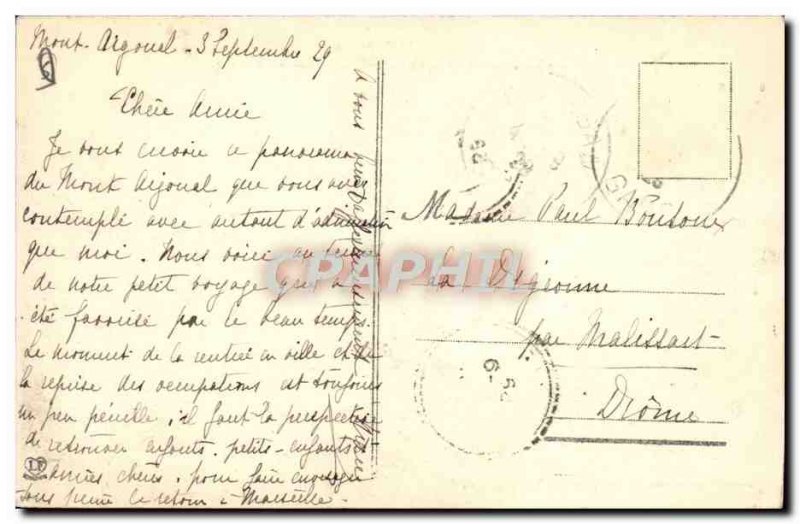 Mont-Aigoual - 3 Septembre 29
Chère Amie
Je vous envoie ce panorama
du Mont Aigoual que vous avez
contemplé avec autant d'admiration
que moi. Nous voici au terme
de notre petit voyage qui a
été favorisé par le beau temps.
Le moment de la rentrée en ville et de
la reprise des occupations est toujours
un peu pénible, il faut la perspective
de retrouver enfants, petits-enfants
amies chères, pour faire envisager
sans peine le retour à Marseille.
à vous
Madame Paul
La
par Malissart
Drôme
CPAPHIL
LF
GARD
29
6-9
29